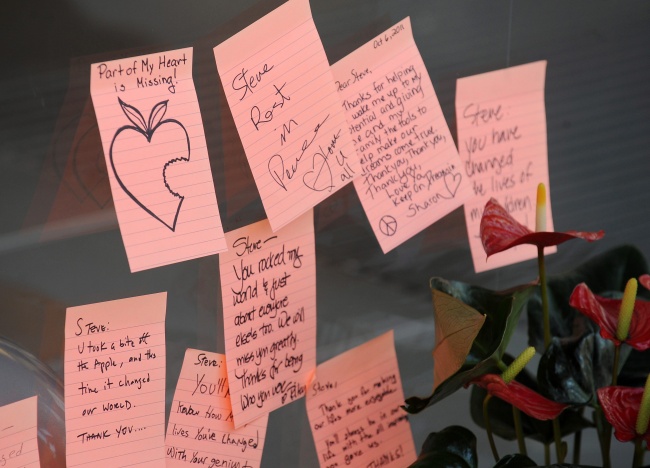 Part of My Heart
is Missing!
Steve
Rest
in
Peace
Love
all
Oct 6, 2011
Dear Steve,
Thanks for helping
wake me up to my
potential and giving
me and my
family the tools to
help make our
dreams come true.
Thank you, Thank you,
Thank you.
Love You
Keep On
Sharon
Steve
you have
changed
the lives of
my children
Steve—
You rocked my
world & just
about everyone
else's too. We will
miss you greatly.
Thanks for being
who you were.
Steve:
U took a bite off
the Apple, and this
time it changed
our world.
Thank you....
Steve:
You'll
Know How
lives You've changed
With your genius
Steve,
Thank you for making
our lives more
THANKS!